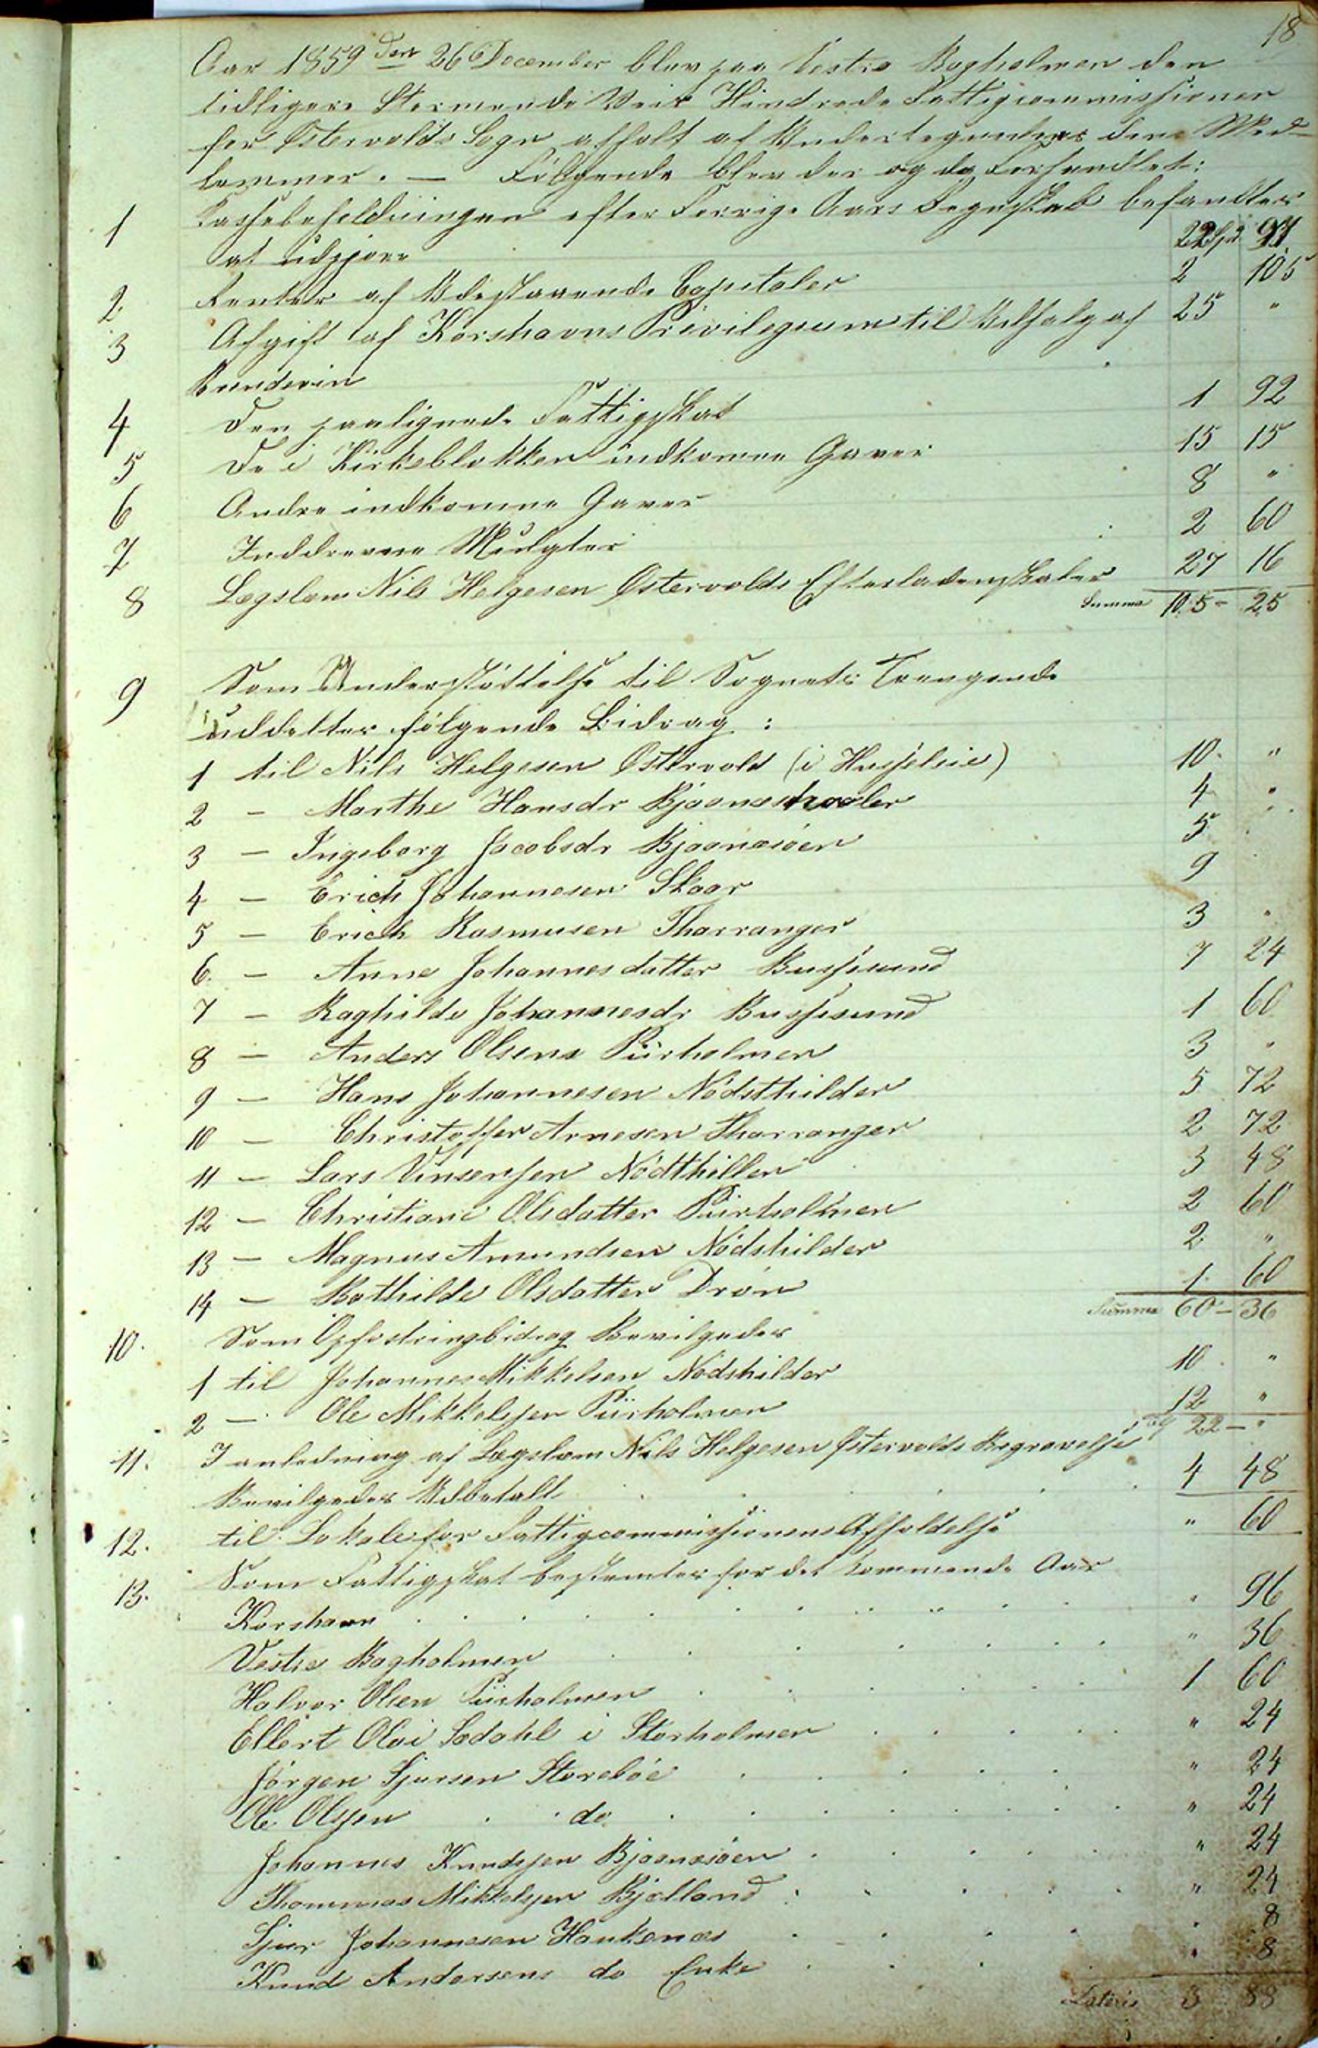 18
Aar 1859 den 26 December blev paa Vestre Bagholmen den
tidligere Stormende Veir Hindrede Fattigcommissionen
for Østervolds Sogn afholt af Undertegnede dens Med-
lemmer. — Følgende blev der og da Forhandlet:
1 Kassebeholdningen efter Forrige Aars Regnskab befandtes
at udgjøre 22 Spd 97
2 Renter af Udestaaende Capitaler 2 105
3 Afgift af Korshavns Privilegium til Udsalg af 25 "
Brændeviin
4 Den paalignede Fattigskat 1 92
5 De i Kirkeblokken indkomne Gaver 15 15
6 Andre indkomne Gaver 8 "
7 Inddrevne Mulgter 2 60
8 Lægslem Nils Helgesen Østervolds Efterladenskaber 27 16
Summa 105 - 25
9 Som Understøttelse til Sognets Trængende
uddeltes følgende Bidrag:
1 til Nils Helgesen Østervold (i Husleie) 10 "
2 — Marthe Hansdr Bjoenæs 4 "
3 — Ingeborg Jacobsdr Bjoenæsøen 5
4 — Erich Johannesen Skaar 9
5 — Erich Rasmusen Tharranger 3 "
6 — Anne Johannesdatter Bussesund 7 24
7 — Raghilde Johannesdr Bussesund 1 60
8 — Anders Olsens Piirholmen 3 "
9 — Hans Johannesen Nödsthilder 5 72
10 — Christoffer Arnesen Tharranger 2 72
11 — Lars Vinsensen Nödthillen 3 48
12 — Christiane Olsdatter Piirholmen 2 60
13 — Magnus Amundsen Nödshilder 2 "
14 — Bothilde Olsdatter Drön 1 60
Summa 60 - 36
10. Som Opfostringbidrag Bevilgedes
1 til Johannes Mikkelsen Nodshilder 10 "
2 — Ole Mikkelsen Piirholmen 12 "
22 - "
11. I anledning af Lægslem Nils Helgesen Østervolds Begravelse
Bevilgedes Udbetalt 4 48
12. til Lokale for Fattigcommissionens Afholdelse " 60
13. Som Fattigskat bestemtes for det kommende Aar
Korshavn " 96
Vestre Bagholmen " 36
Halvor Olsen Piirholmen 1 60
Ellert Olai Sædahl i Storholmen " 24
Jörgen Sjursen Storeböe " 24
Ole Olsen do " 24
Johannes Knudsen Bjoenæsøen " 24
Thommas Mikkelsen Bjelland " 24
Sjur Johannesen Haukenæs " 8
Knud Andersens do Enke " 8
Lateris 3 88